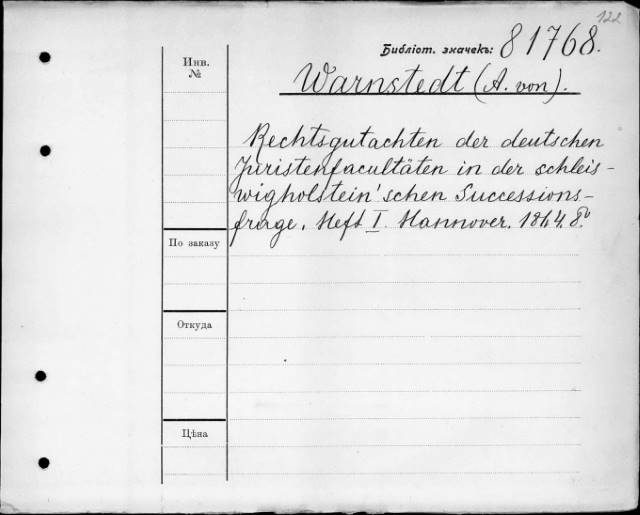 122
Библіот. значекъ: 81768.
Инв.
№
Warnstedt (A. von).
Rechtsgutachten der deutschen
Juristenfacultäten in der schleis-
wigholstein'schen Successions-
frage. Heft I. Hannover. 1864. 8º.
По заказу
Откуда
Цѣна